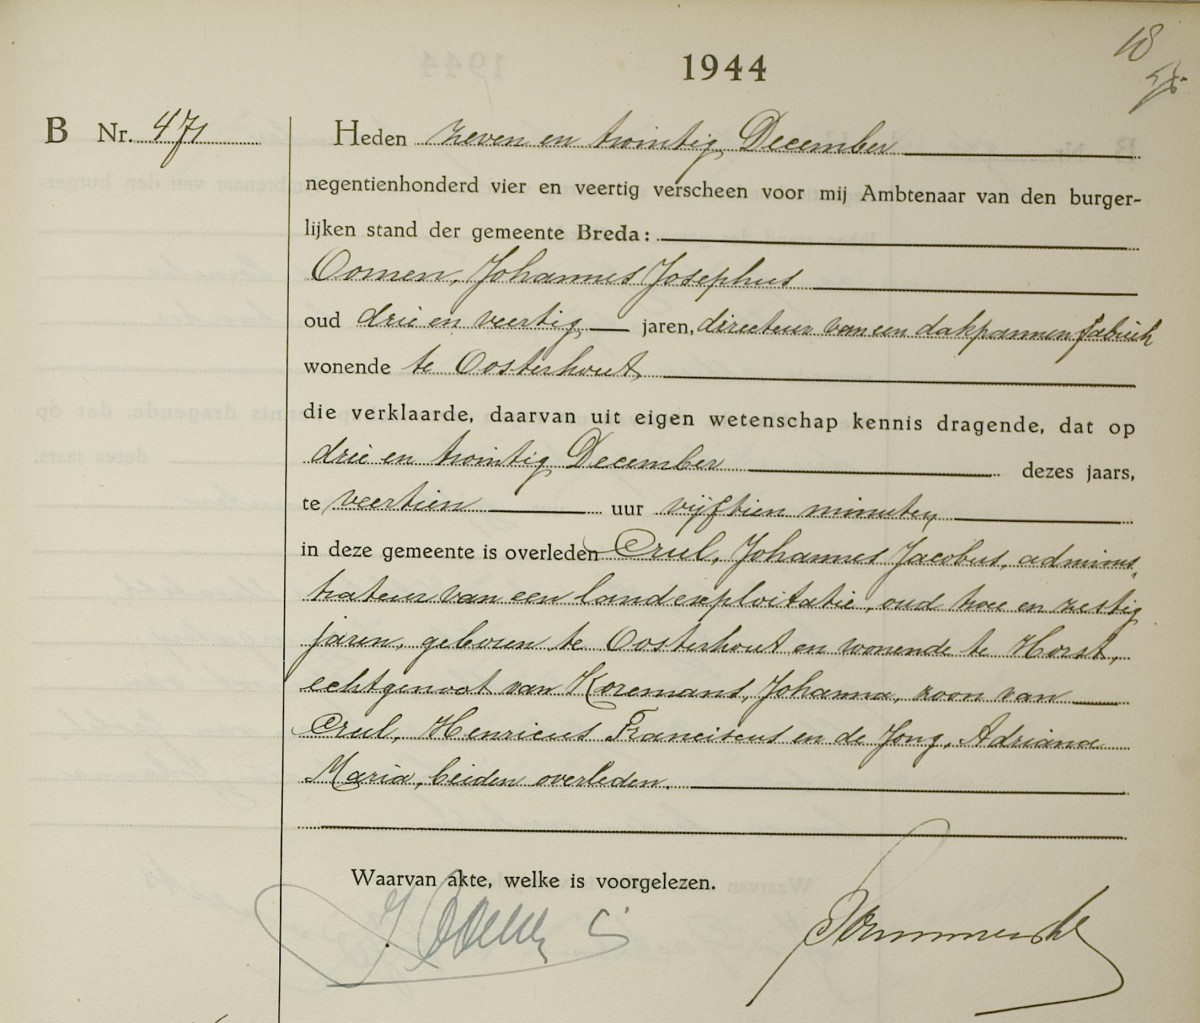 1944
18
B Nr. 471
Heden zeven en twintig December
negentienhonderd vier en veertig verscheen voor mij Ambtenaar van den burger-
lijken stand der gemeente Breda:
Oomen, Johannes Josephus
oud drie en veertig jaren, directeur van een dakpannenfabriek
wonende te Oosterhout
die verklaarde, daarvan uit eigen wetenschap kennis dragende, dat op
drie en twintig December dezes jaars,
te veertien uur vijftien minuten
in deze gemeente is overleden Crul, Johannes Jacobus, adminis-
trateur van een landexploitatie, oud twee en zestig
jaren, geboren te Oosterhout en wonende te Horst,
echtgenoot van Koremans, Johanna, zoon van
Crul, Henricus Franciscus en de Jong, Adriana
Maria, beiden overleden.
Waarvan akte, welke is voorgelezen.